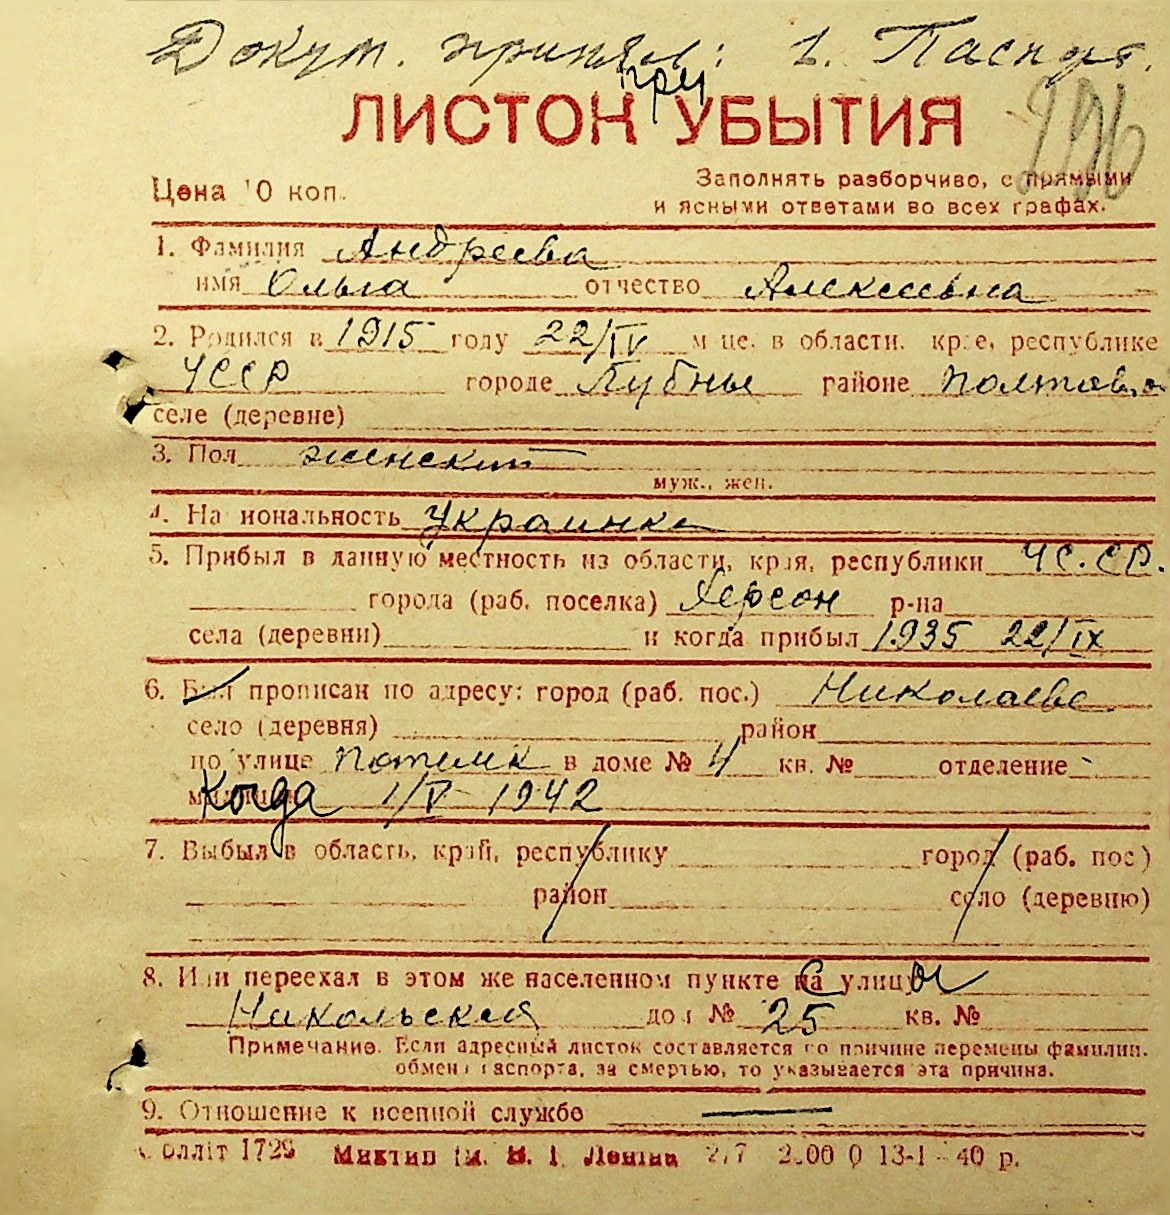 Докум. принял: 1. Паспорт.
при
ЛИСТОК УБЫТИЯ
296
Цена 10 коп.
Заполнять разборчиво, с прямыми
и ясными ответами во всех графах.
1. Фамилия Андреева
имя Ольга отчество Алексеевна
2. Родился в 1915 году 22/IV м-це, в области, крае, республике
УССР городе Лубны районе Полтавск
селе (деревне)
3. Пол женский
муж., жен.
4. Национальность Украинка
5. Прибыл в данную местность из области, края, республики УС.СР.
города (раб. поселка) Херсон р-на
села (деревни) и когда прибыл 1935 22/IX
6. Был прописан по адресу: город (раб. пос.) Николаеве
село (деревня) район
по улице Потемк в доме № 4 кв. № отделение -
милиции Когда 1/V 1942
7. Выбыл в область, край, республику город (раб. пос.)
район село (деревню)
8. Или переехал в этом же населенном пункте с улицы
Никольская дом № 25 кв. №
Примечание. Если адресный листок составляется по причине перемены фамилии,
обмена паспорта, за смертью, то указывается эта причина.
9. Отношение к военной службе —
Облліт 1729 Миктип ім. В. І. Леніна 2,00 0 13-I - 40 р.